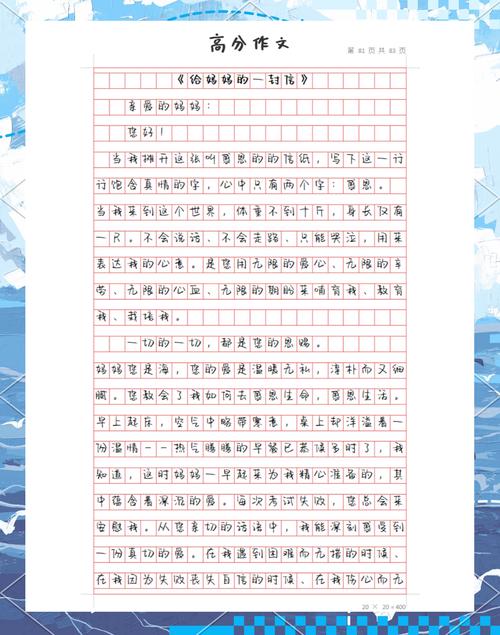 高分作文
第 81 页 共 83 页
《给妈妈的一封信》
亲爱的妈妈：
您好！
当我摊开这张叫感恩的的信纸，写下这一行
行饱含真情的字，心中只有两个字：感恩。
当我来到这个世界，体重不到十斤，身长仅有
一尺。不会说话、不会走路、只能哭泣，用来
表达我的心意。是您用无限的爱心、无限的辛
劳、无限的心血、无限的期盼来哺育我、教育
我、栽培我。
一切的一切，都是您的恩赐。
妈妈您是海，您的爱是温暖无私，淳朴而又细
腻。您教会了我如何去感恩生命，感恩生活。
早上起床，空气中略带寒意，桌上却洋溢着一
份温情--热气腾腾的早餐已恭候多时了，我
知道，这时妈妈一早起来为我精心准备的，其
中蕴含着深深的爱。每次考试失败，您总会来
安慰我。从您亲切的话语中，我能深刻感受到
一份真切的爱。在我遇到困难而无措的时候、
在我因为失败丧失自信的时候、在我伤心而无
20 × 20 = 400